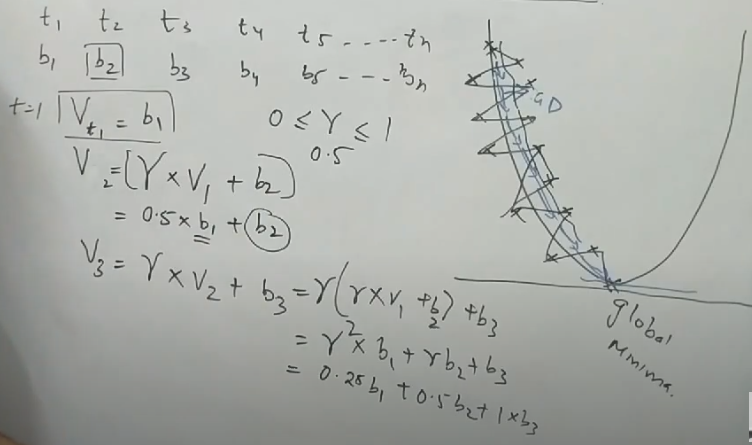 t₁ t₂ t₃ t₄ t₅ ..... tₙ
b₁ b₂ b₃ b₄ b₅ --- bₙ
t=1 V_t₁ = b₁
0 ≤ γ ≤ 1
0.5
V₂ = [γ × V₁ + b₂]
= 0.5 × b₁ + b₂
V₃ = γ × V₂ + b₃ = γ(γ × V₁ + b₂) + b₃
= γ² × b₁ + γb₂ + b₃
= 0.25b₁ + 0.5b₂ + 1 × b₃
GD
global
minima.